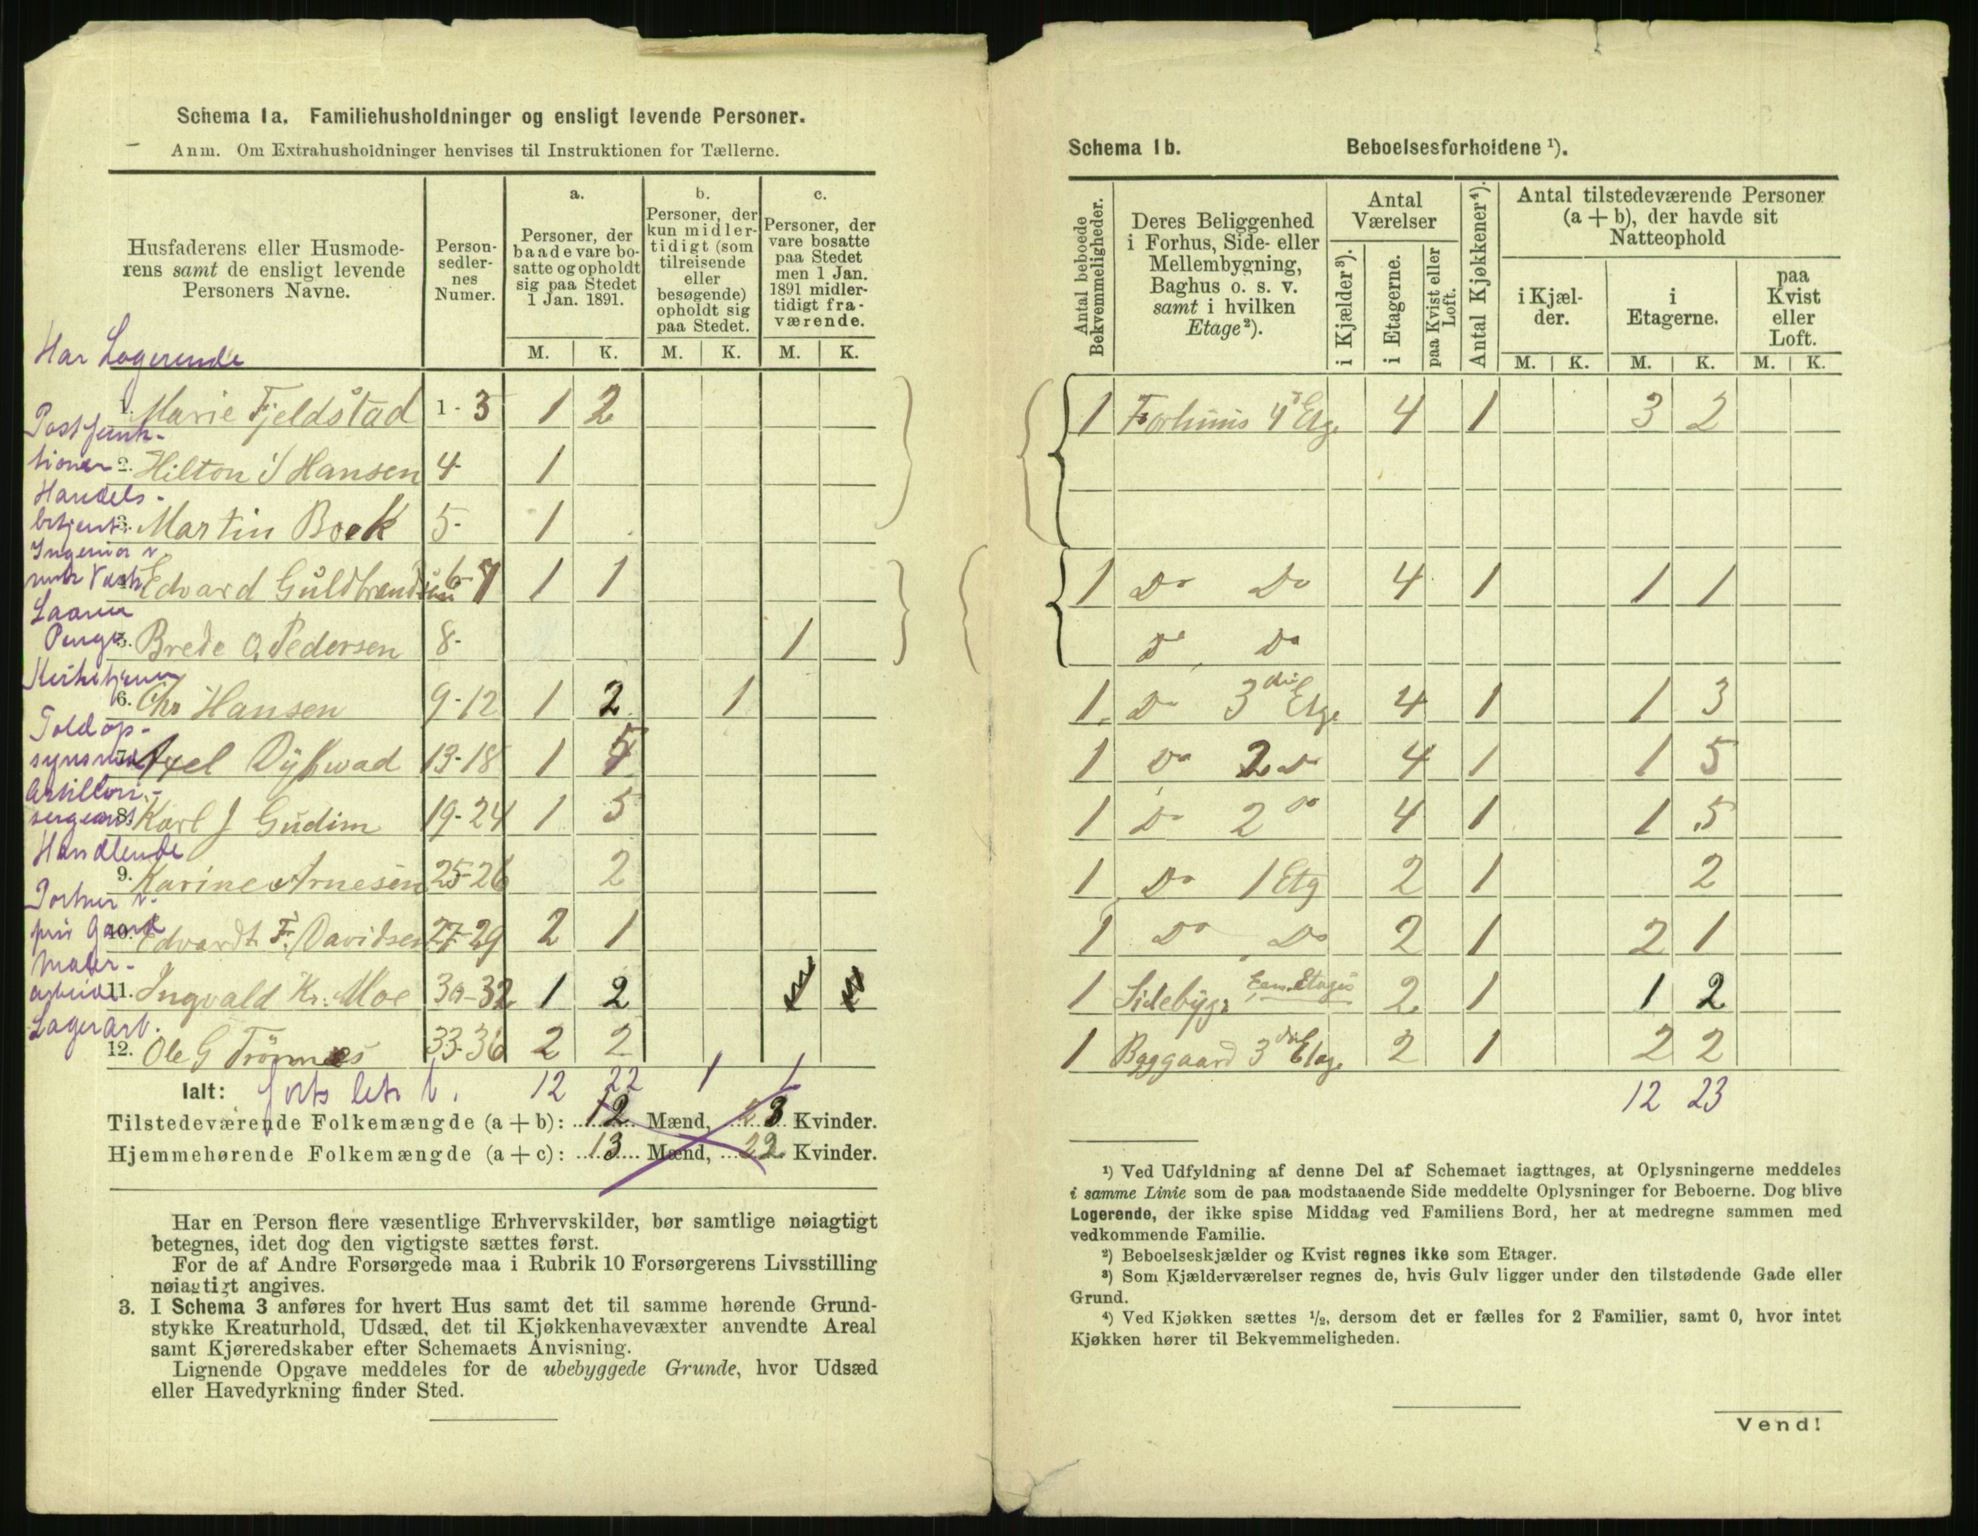 Schema 1a. Familiehusholdninger og ensligt levende Personer.
Anm. Om Extrahusholdninger henvises til Instruktionen for Tællerne.
Husfaderens eller Husmoderens samt de ensligt levende Personers Navne.
Personsedlernes Numer.
a.
Personer, der baade vare bosatte og opholdt sig paa Stedet 1 Jan. 1891.
b.
Personer, der kun midlertidigt (som tilreisende eller besøgende) opholdt sig paa Stedet.
c.
Personer, der vare bosatte paa Stedet men 1 Jan. 1891 midlertidigt fraværende.
M. K. M. K. M. K.
Har Logerende
1. Marie Fjeldstad 1-3 1 2
Postfunktionær
2. Hilton S Hansen 4- 1
Handelsbetjent
3. Martin Boek 5- 1
Ingeniør v.
4. Edvard Guldbrandsen 6-7 1 1
Laaner Penge
5. Brede O. Pedersen 8- 1
6. Chr Hansen 9-12 1 2 1
Toldopsynsmd
7. Axel Dybwad 13-18 1 5
Artillerisergeant
8. Karl J Gudim 19-24 1 5
Handlende
9. Karine Arnesen 25-26 2
Portner v.
10. Edvardt F. Davidsen 27-29 2 1
Malerarbeide
11. Ingvald Kr. Moe 30-32 1 2
Lagerarb.
12. Ole G Trönnes 33-36 2 2
Ialt: 12 22 1 1
Tilstedeværende Folkemængde (a + b): 12 Mænd, 23 Kvinder.
Hjemmehørende Folkemængde (a + c): 13 Mænd, 22 Kvinder.
Har en Person flere væsentlige Erhvervskilder, bør samtlige nøiagtigt
betegnes, idet dog den vigtigste sættes først.
For de af Andre Forsørgede maa i Rubrik 10 Forsørgerens Livsstilling
nøiagtigt angives.
3. I Schema 3 anføres for hvert Hus samt det til samme hørende Grund-
stykke Kreaturhold, Udsæd, det til Kjøkkenhavevæxter anvendte Areal
samt Kjøreredskaber efter Schemaets Anvisning.
Lignende Opgave meddeles for de ubebyggede Grunde, hvor Udsæd
eller Havedyrkning finder Sted.
Schema 1b. Beboelsesforholdene ¹).
Antal beboede Bekvemmeligheder.
Deres Beliggenhed i Forhus, Side- eller Mellembygning, Baghus o. s. v. samt i hvilken Etage²).
Antal Værelser
i Kjælder³).
i Etagerne.
paa Kvist eller Loft.
Antal Kjøkkener⁴).
Antal tilstedeværende Personer (a + b), der havde sit Natteophold
i Kjælder.
i Etagerne.
paa Kvist eller Loft.
M. K. M. K. M. K.
1 Forhuus 4de Etg. 4 1 3 2
1 Do Do 4 1 1 1
Do Do
1 Do 3die Etge 4 1 1 3
1 Do 2 Do 4 1 1 5
1 Do 2 Do 4 1 1 5
1 Do 1 Etg 2 1 2
1 Do Do 2 1 2 1
1 Sidebygn Een.Etages 2 1 1 2
1 Baggaard 3die Etage 2 1 2 2
12 23
¹) Ved Udfyldning af denne Del af Schemaet iagttages, at Oplysningerne meddeles
i samme Linie som de paa modstaaende Side meddelte Oplysninger for Beboerne. Dog blive
Logerende, der ikke spise Middag ved Familiens Bord, her at medregne sammen med
vedkommende Familie.
²) Beboelseskjælder og Kvist regnes ikke som Etager.
³) Som Kjælderværelser regnes de, hvis Gulv ligger under den tilstødende Gade eller
Grund.
⁴) Ved Kjøkken sættes ½, dersom det er fælles for 2 Familier, samt 0, hvor intet
Kjøkken hører til Bekvemmeligheden.
Vend!